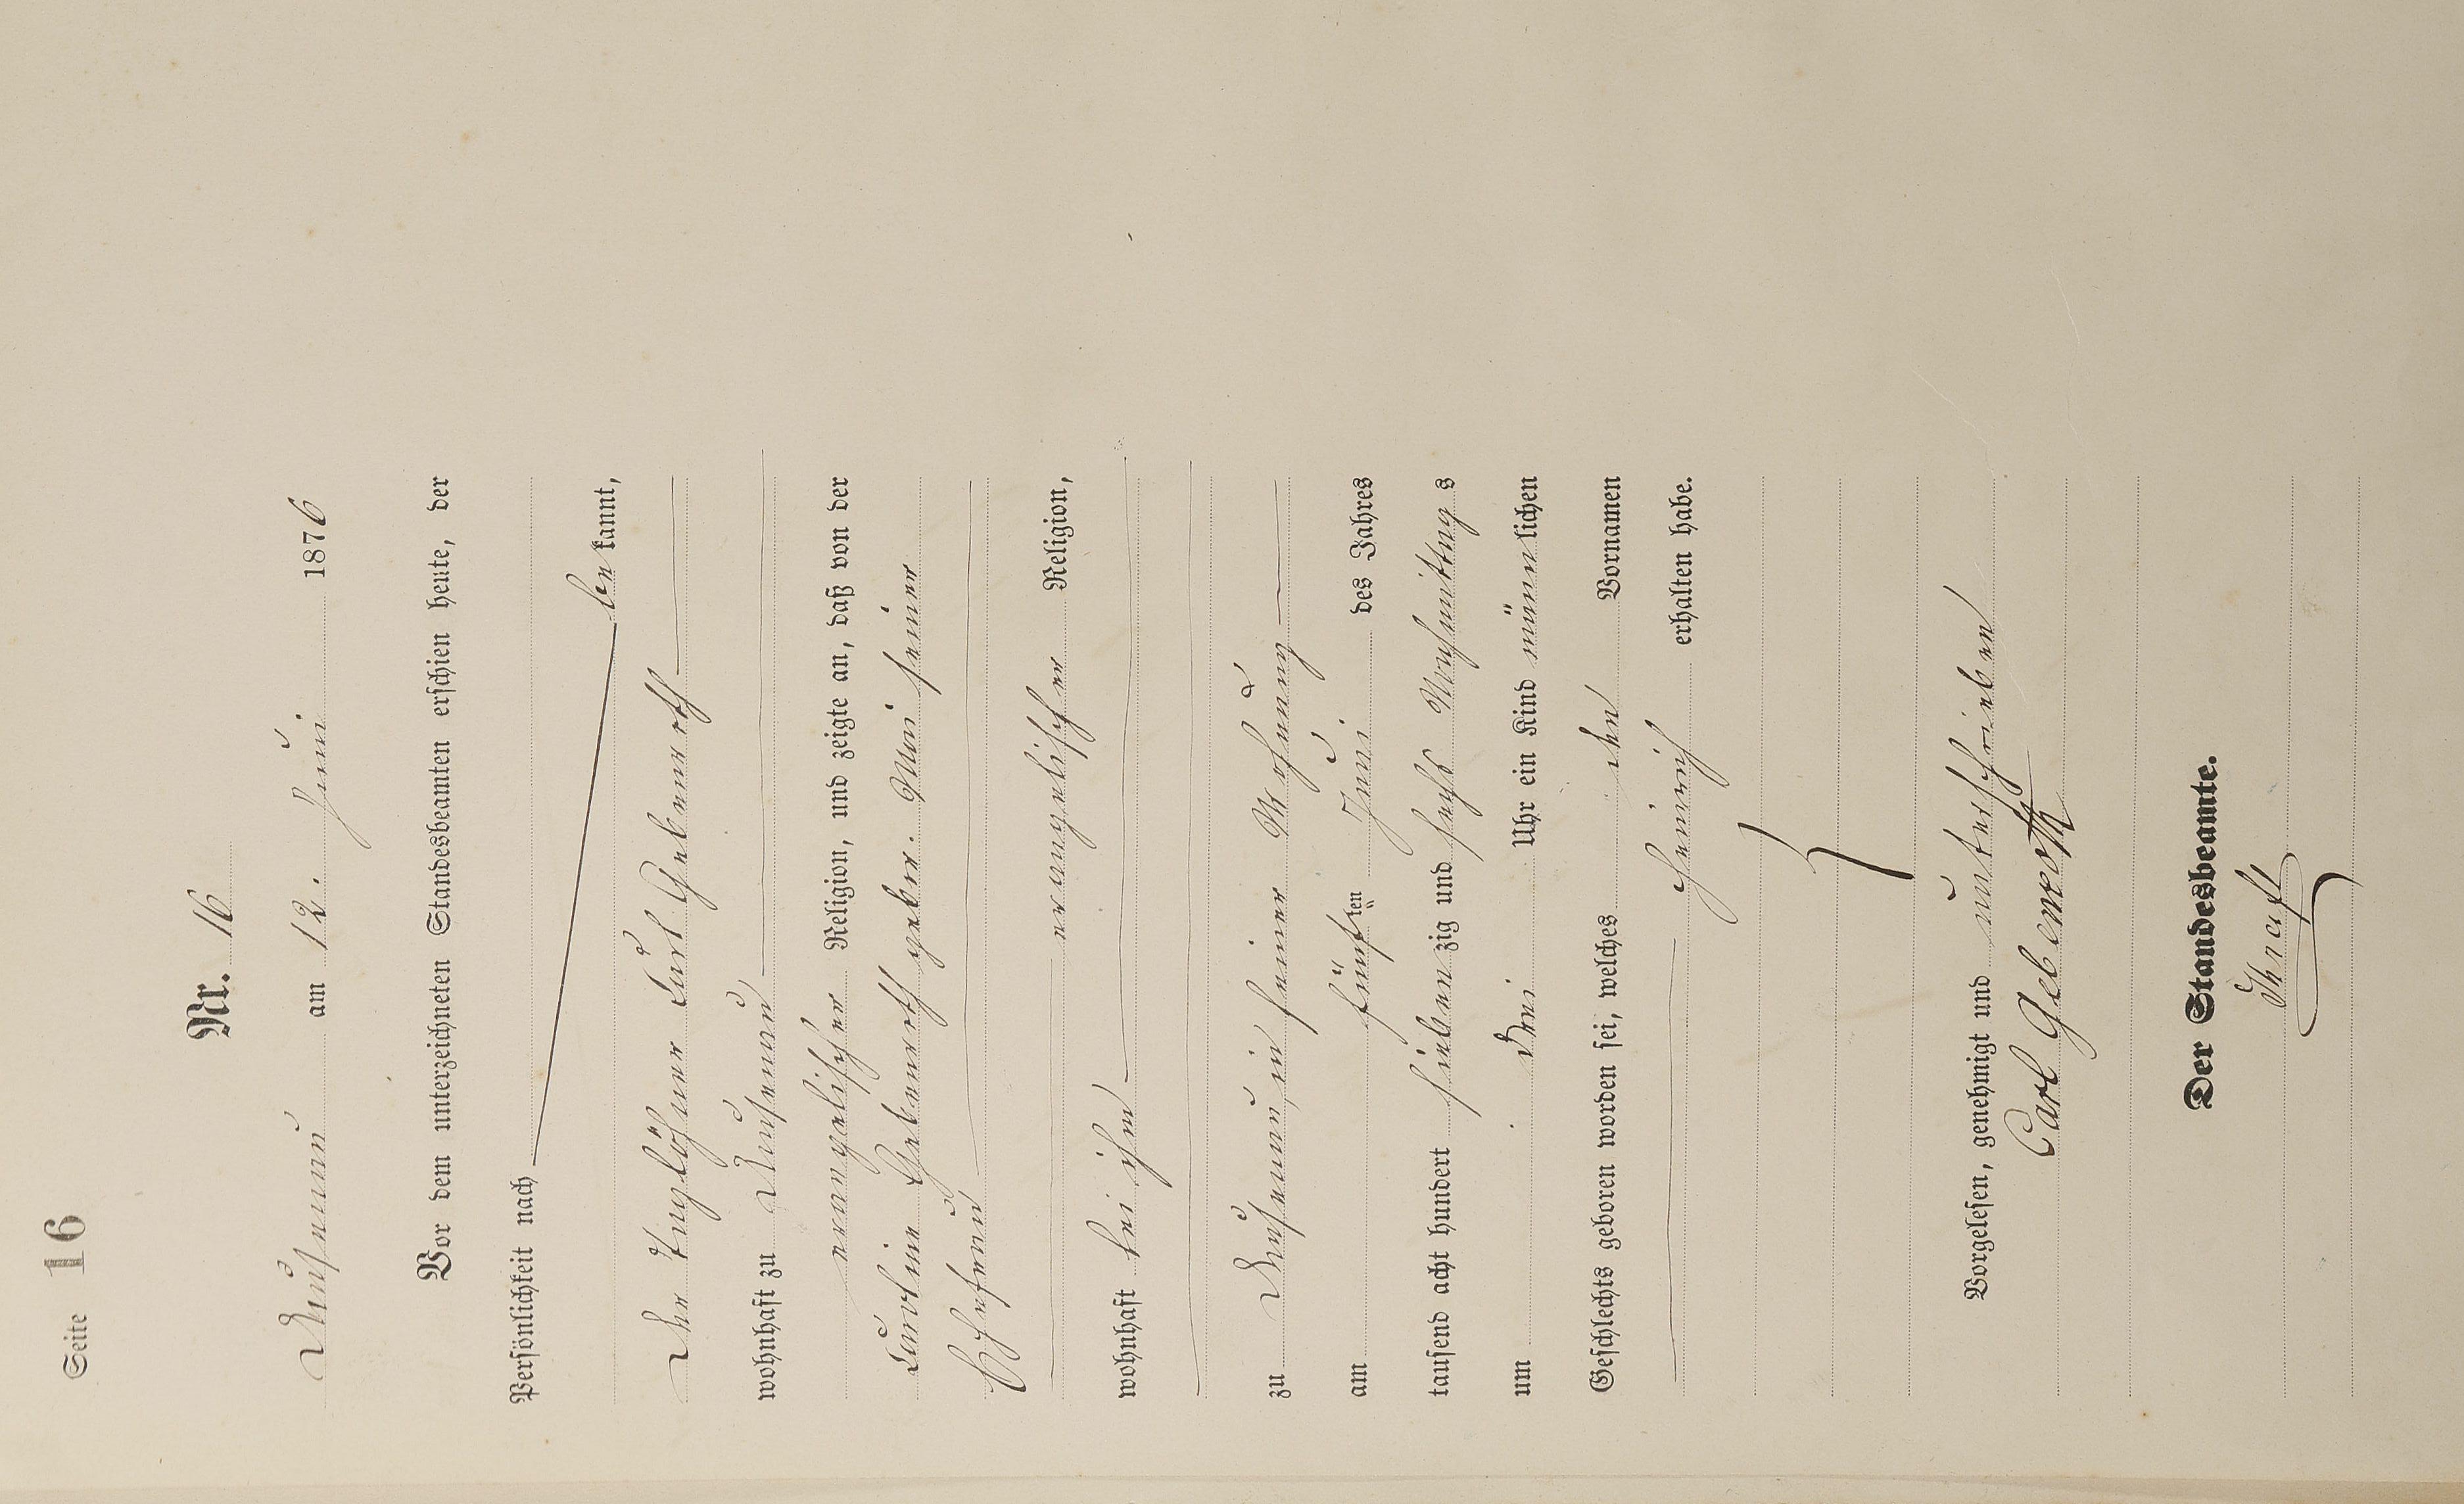 Seite 16
Nr. 16
Dausenau am 12. Juni 1876
Vor dem unterzeichneten Standesbeamten erschien heute, der
Persönlichkeit nach
be kannt,
der Taglöhner Carl Gebenroth
wohnhaft zu Dausenau
evangelischer Religion, und zeigte an, daß von der
Caroline Gebenroth gebor. seiner
Ehefrau
evangelischer Religion,
wohnhaft bei ihm
zu Dausenau, in seiner Wohnung
am fünften Juni des Jahres
tausend acht hundert sieben zig und sechs Nachmittag s
um drei Uhr ein Kind männ lichen
Geschlechts geboren worden sei, welches den Vornamen
Heinrich erhalten habe.
Vorgelesen, genehmigt und unterschrieben
Carl Gebenroth
Der Standesbeamte.